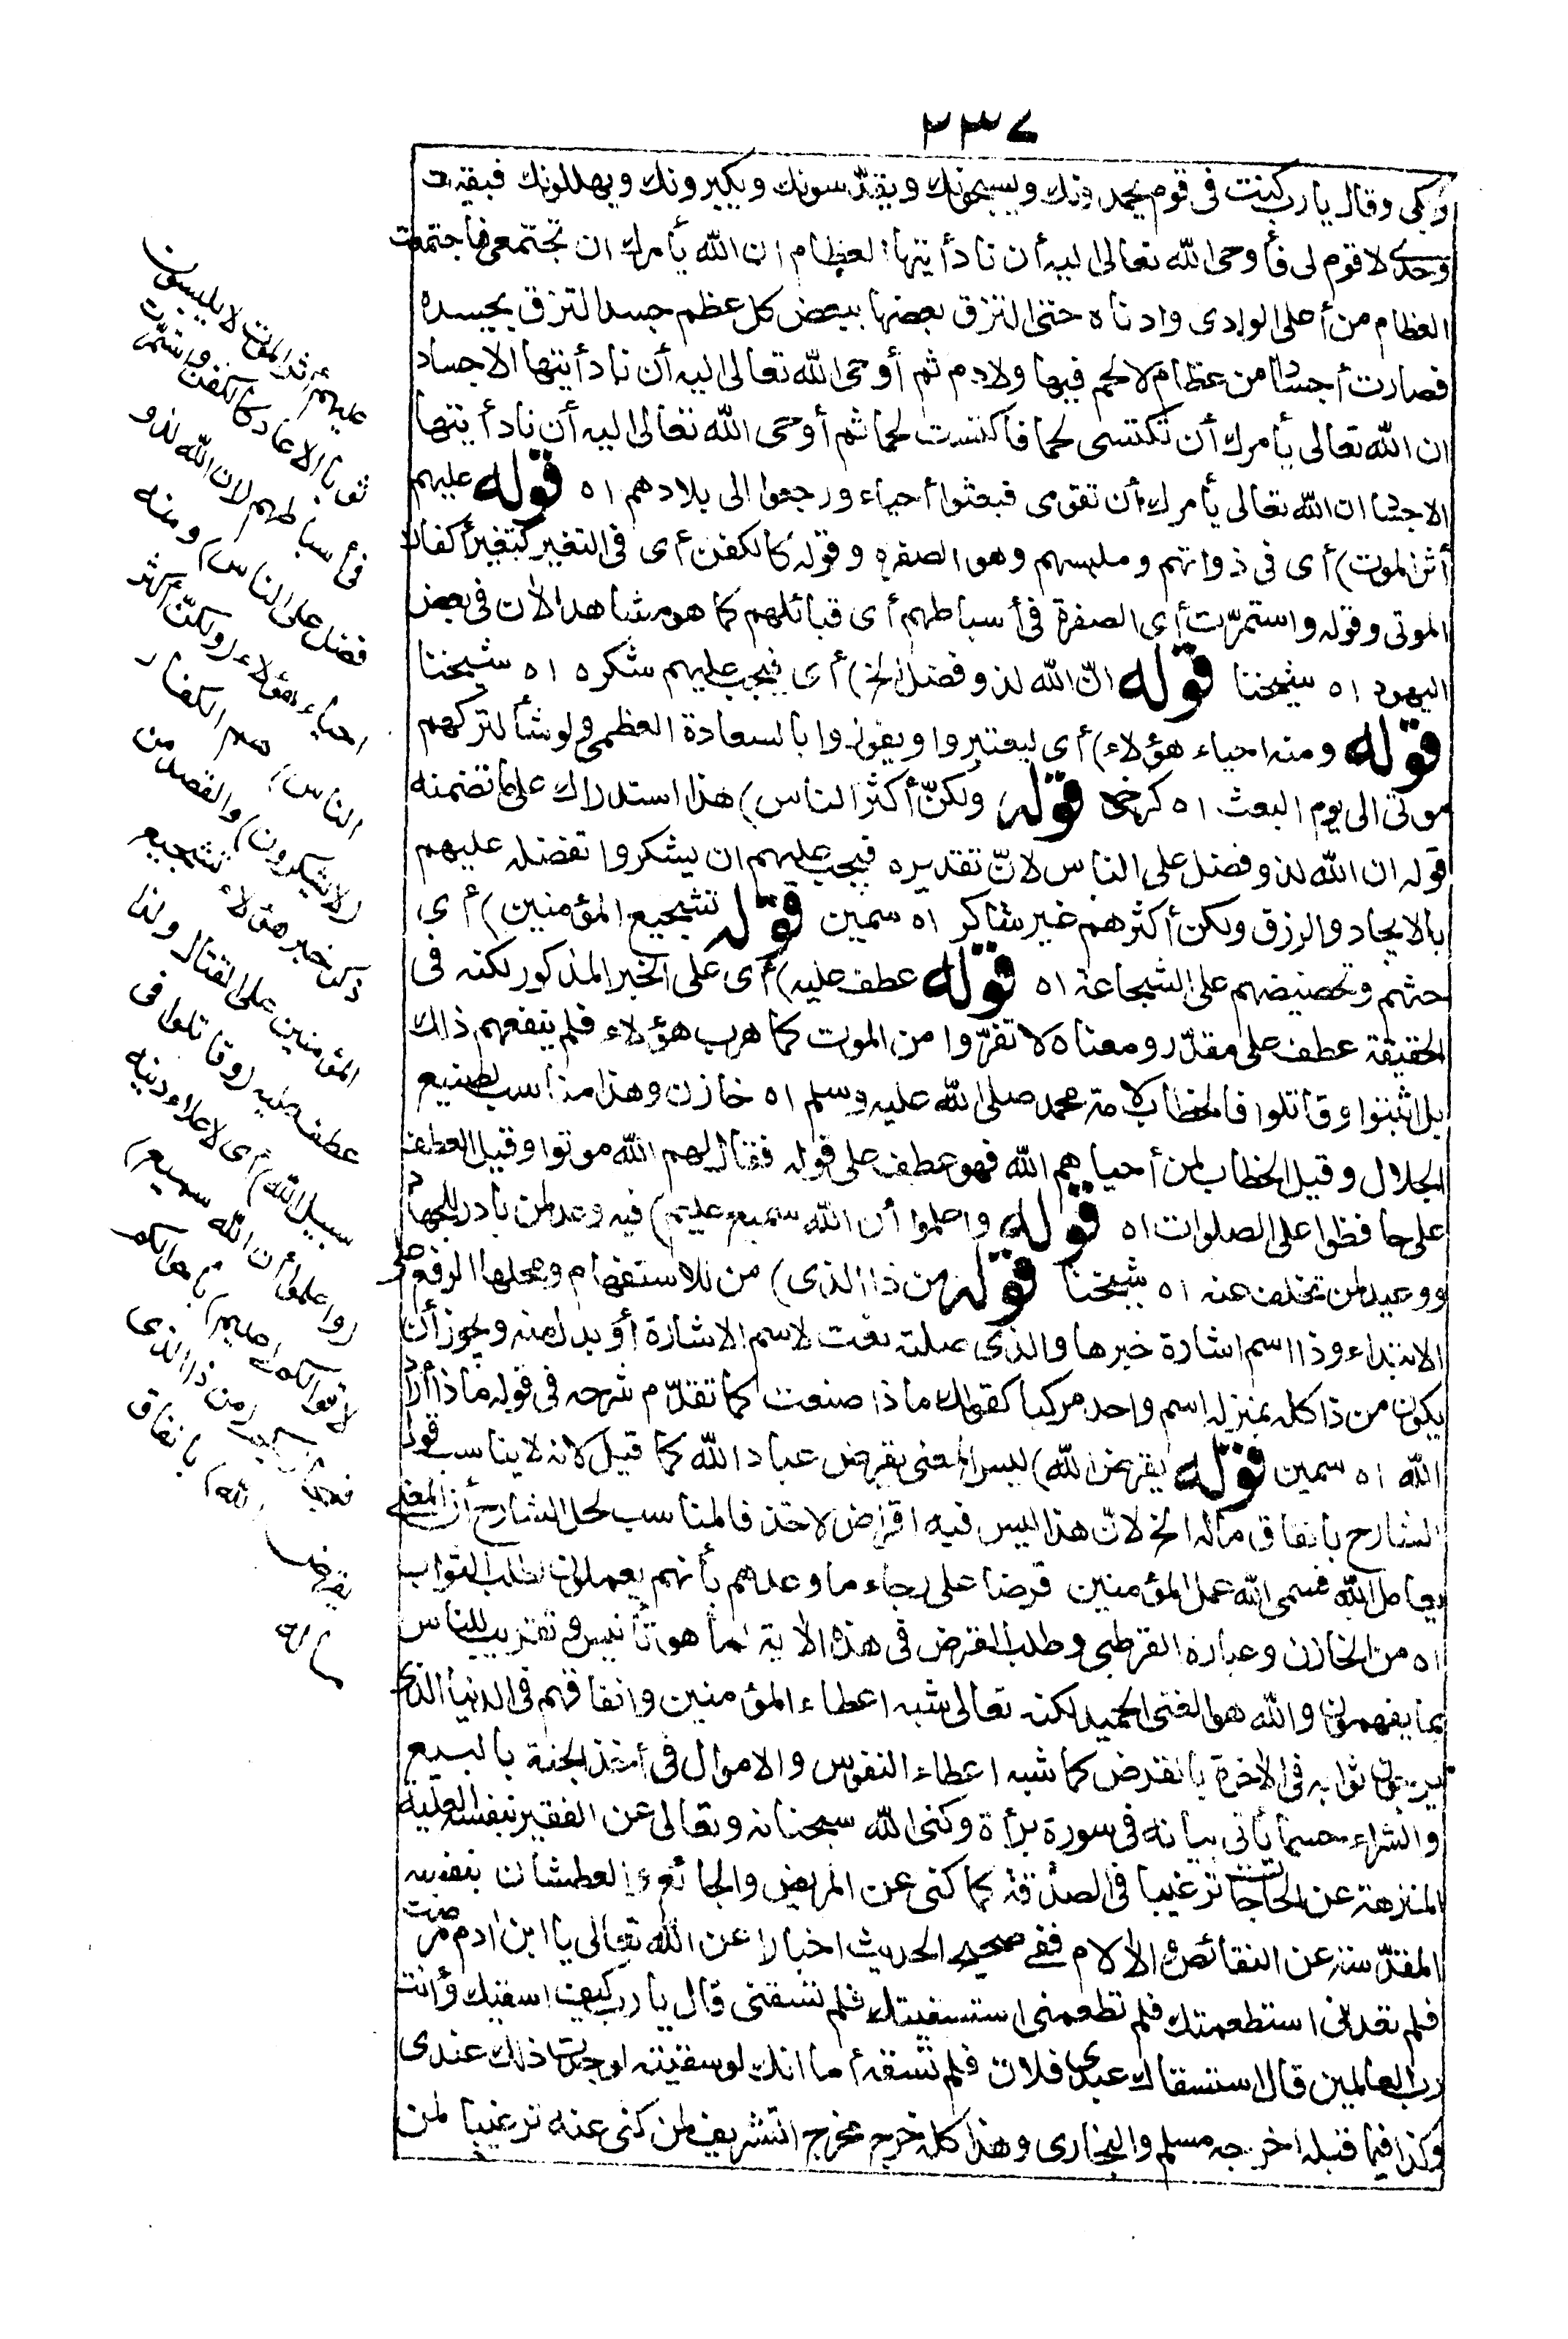 ٢٣٧
وبكى وقال يا رب كنت فى قوم يحمدونك ويسبحونك ويقدّسونك ويكبرونك ويهللونك فبقيت
وحدى لا قوم لى فأوحى الله تعالى اليه أن ناد أيتها العظام ان الله يأمرك ان تجتمعى فاجتمعت
العظام من أعلى الوادى وادناه حتى التزق بعضها ببعض كل عظم جسد التزق بجسده
فصارت أجسادا من عظام لا لحم فيها ولا دم ثم أوحى الله تعالى اليه أن ناد أيتها الاجساد
ان الله تعالى يأمرك أن تكتسى لحما فاكتست لحما ثم أوحى الله تعالى اليه أن ناد أيتها
الاجساد ان الله تعالى يأمرك أن تقومى فبعثوا أحياء ورجعوا الى بلادهم اه قوله عليهم
أثر الموت) أى فى ذواتهم وملبسهم وهو الصفرة وقوله كالكفن أى فى التغير كتغير أكفان
الموتى وقوله واستمرّت أى الصفرة فى أسباطهم أى قبائلهم كما هو مشاهد الآن فى بعض
اليهود اه شيخنا قوله انّ الله لذو فضل الخ) أى فيجب عليهم شكره اه شيخنا
قوله ومنه احياء هؤلاء) أى ليعتبروا ويفوزوا بالسعادة العظمى ولو شاء لتركهم
موتى الى يوم البعث اه كرخى قوله ولكنّ أكثر الناس) هذا استدراك على ما تضمنه
قوله ان الله لذو فضل على الناس لانّ تقديره فيجب عليهم ان يشكروا تفضله عليهم
بالايجاد والرزق ولكن أكثرهم غير شاكر اه سمين قوله تشجيع المؤمنين) أى
حثهم وتحضيضهم على الشجاعة اه قوله عطف عليه) أى على الخبر المذكور لكنه فى
الحقيقة عطف على مقدّر ومعناه لا تفرّوا من الموت كما هرب هؤلاء فلم ينفعهم ذلك
بل اثبتوا وقاتلوا فالخطاب لامة محمد صلى الله عليه وسلم اه خازن وهذا مناسب لصنيع
الجلال وقيل الخطاب لمن أحياهم الله فهو عطف على قوله فقال لهم الله موتوا وقيل العطف
على حافظوا على الصلوات اه قوله واعلموا أن الله سميع عليم) فيه وعد لمن بادر للجهاد
ووعيد لمن تخلف عنه اه شيخنا قوله من ذا الذى) من للاستفهام ومحلها الرفع على
الابتداء وذا اسم اشارة خبرها والذى صلته نعت لاسم الاشارة أو بدل منه ويجوز أن
يكون من ذا كله بمنزلة اسم واحد مركبا كقولك ماذا صنعت كما تقدّم شرحه فى قوله ماذا أراد
الله اه سمين قوله يقرض الله) ليس المعنى يقرض عباد الله كما قيل لانه لا يناسب قول
الشارح بانفاق ماله الخ لانّ هذا ليس فيه اقراض لاحد فالمناسب لحل الشارح أن المعنى
يعامل الله فسمى الله عمل المؤمنين قرضا على رجاء ما وعدهم بأنهم يعملون لطلب الثواب
اه من الخازن وعبارة القرطبى وطلب القرض فى هذه الآية انما هو تأنيس وتقريب للناس
بما يفهمونه والله هو الغنى الحميد لكنه تعالى شبه اعطاء المؤمنين وانفاقهم فى الدنيا الذى
يرجون ثوابه فى الآخرة بالقرض كما شبه اعطاء النفوس والاموال فى أخذ الجنة بالبيع
والشراء حسبما يأتى بيانه فى سورة برأة وكنى الله سبحانه وتعالى عن الفقير بنفسه العلية
المنزهة عن الحاجات ترغيبا فى الصدقة كما كنى عن المريض والجائع والعطشان بنفسه
المقدّسة عن النقائص والآلام ففى صحيح الحديث اخبارا عن الله تعالى يا ابن آدم مرضت
فلم تعدنى استطعمتك فلم تطعمنى استسقيتك فلم تسقنى قال يا رب كيف اسقيك وأنت
رب العالمين قال استسقاك عبدى فلان فلم تسقه أما انك لو سقيته لوجدت ذلك عندى
وكذا فيما قبله اخرجه مسلم والبخارى وهذا كله خرج مخرج التشريف لمن كنى عنه ترغيبا لمن
عليهم أثر الموت لا يلبسون
ثوبا الا عاد كالكفن واستمرّت
فى أسباطهم لان الله لذو
فضل على الناس) ومنه
احياء هؤلاء (ولكنّ أكثر
الناس) هم الكفار
(لا يشكرون) والقصد من
ذكر خبر هؤلاء تشجيع
المؤمنين على القتال ولذا
عطف عليه (وقاتلوا فى
سبيل الله) أى لاعلاء دينه
(واعلموا أن الله سميع)
لاقوالكم (عليم) باحوالكم
فيجازيكم (من ذا الذى
يقرض الله) بانفاق
ماله